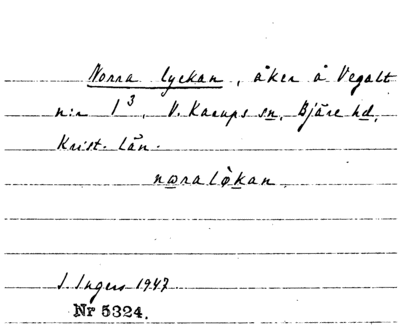 Norra lyckan, åker å Vegalt
n:r 1³, V. Karups sn, Bjäre hd,
Krist. län.
nɷralø̀kan.
I. Ingers 1947
Nr 5324.